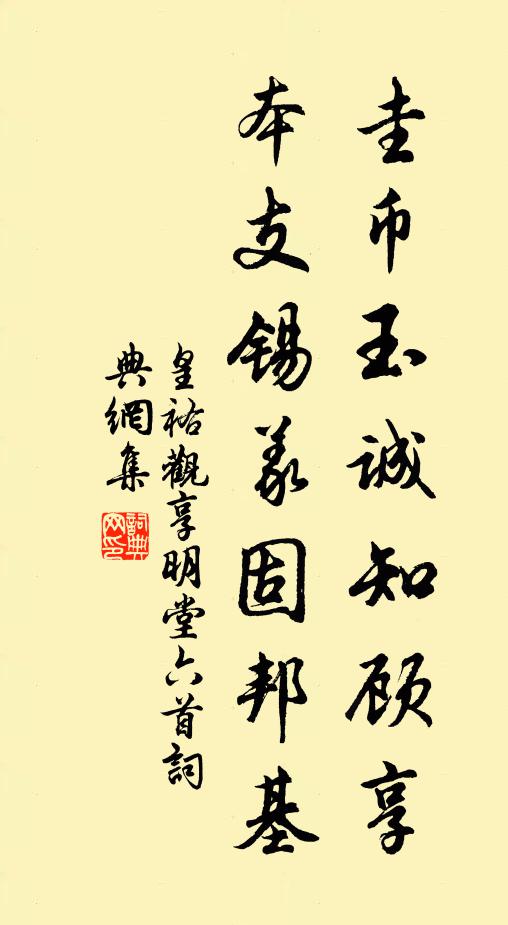 圭币玉誠知顾享
本支锡羡固邦基
皇祐觀享明堂六首詞
典網集
詞典网印